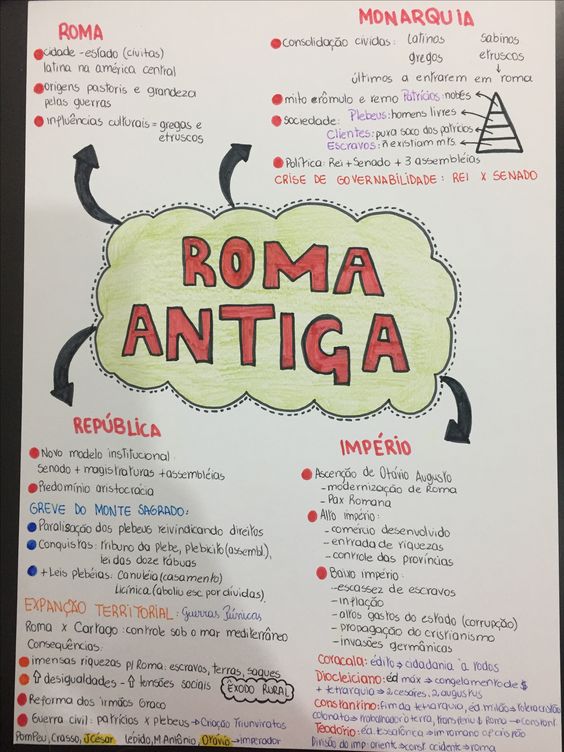 ROMA
cidade-estado (civitas)
latina na américa central
origens pastoris e grandeza
pelas guerras
influências culturais = gregas e
etruscos
MONARQUIA
Consolidação cividas: latinos sabinos
gregos etruscos
últimos a entrarem em roma
mito e rômulo e remo
Sociedade: Patrícios: nobres
Plebeus: homens livres
Clientes: puxa saco dos patrícios
Escravos: ñ existiam mts.
Política: Rei + Senado + 3 assembléias
CRISE DE GOVERNABILIDADE: REI X SENADO
ROMA
ANTIGA
REPÚBLICA
Novo modelo institucional
senado + magistraturas + assembléias
Predomínio aristocracia
GREVE DO MONTE SAGRADO:
Paralisação dos plebeus reivindicando direitos
Conquistas: tribuno da plebe, plebicito (assembl),
lei das doze tábuas
+ Leis plebéias: Canuléia (casamento)
Licínica (aboliu esc. por dívidas).
EXPANÇÃO TERRITORIAL: Guerras Púnicas
Roma x Cartago: controle sob o mar mediterrâneo
Consequências:
imensas riquezas p/ Roma: escravos, terras, saques
⇧ desigualdades - ⇧ tensões sociais
ÊXODO RURAL
Reforma dos irmãos Graco
Guerra civil: patrícios x plebeus → Criação Triunviratos
Pompeu, Crasso, J César Lépido, M. Antônio, Otávio → imperador
IMPÉRIO
Ascenção de Otávio Augusto
- modernização de Roma
- Pax Romana
Alto império:
- comércio desenvolvido
- entrada de riquezas
- controle das províncias
Baixo império:
- escassez de escravos
- inflação
- altos gastos do estado (corrupção)
- propagação do cristianismo
- invasões germânicas
Caracala: édito → cidadania à todos
Diocleiciano: éd máx → congelamento de $
+ tetrarquia → 2 césares, 2 augustus
Constantino: fim da tetrarquia, éd. milão → tolera cristão
colonato → trabalhador a terra, transferiu Roma → Constant.
Teodório: éd. tessalônica → im romano ap cristão